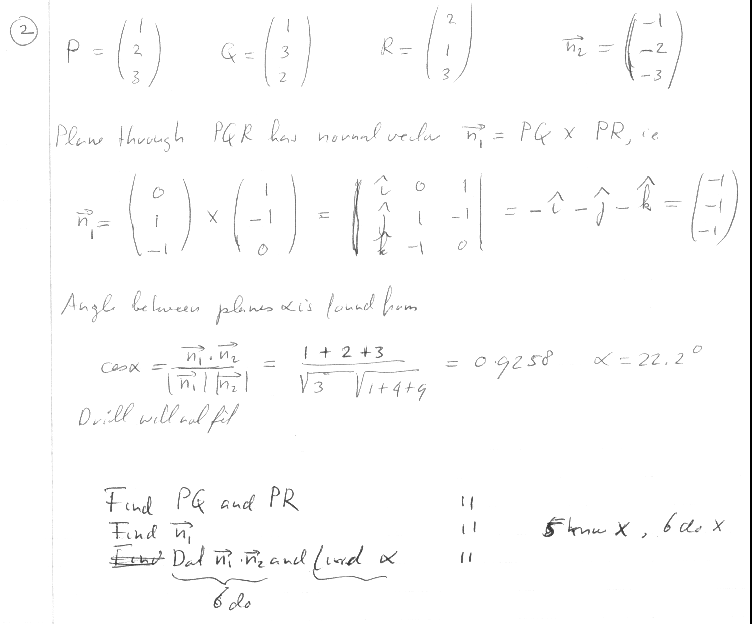 2
P = (1 2 3) Q = (1 3 2) R = (2 1 3) n₂ = (-1 -2 -3)
Plane through PQR has normal vector n₁ = PQ × PR, ie
n₁ = (0 1 -1) × (1 -1 0) = | î 0 1 ĵ 1 -1 k̂ -1 0 | = -î - ĵ - k̂ = (-1 -1 -1)
Angle between planes α is found from
cos α = n₁ · n₂ / |n₁| |n₂| = 1 + 2 + 3 / √3 √1+4+9 = 0.9258 α = 22.2°
Drill will not fit
Find PQ and PR 11
Find n₁ 11 5 know X, 6 do X
Find Dot n₁ · n₂ and find α 11
6 do